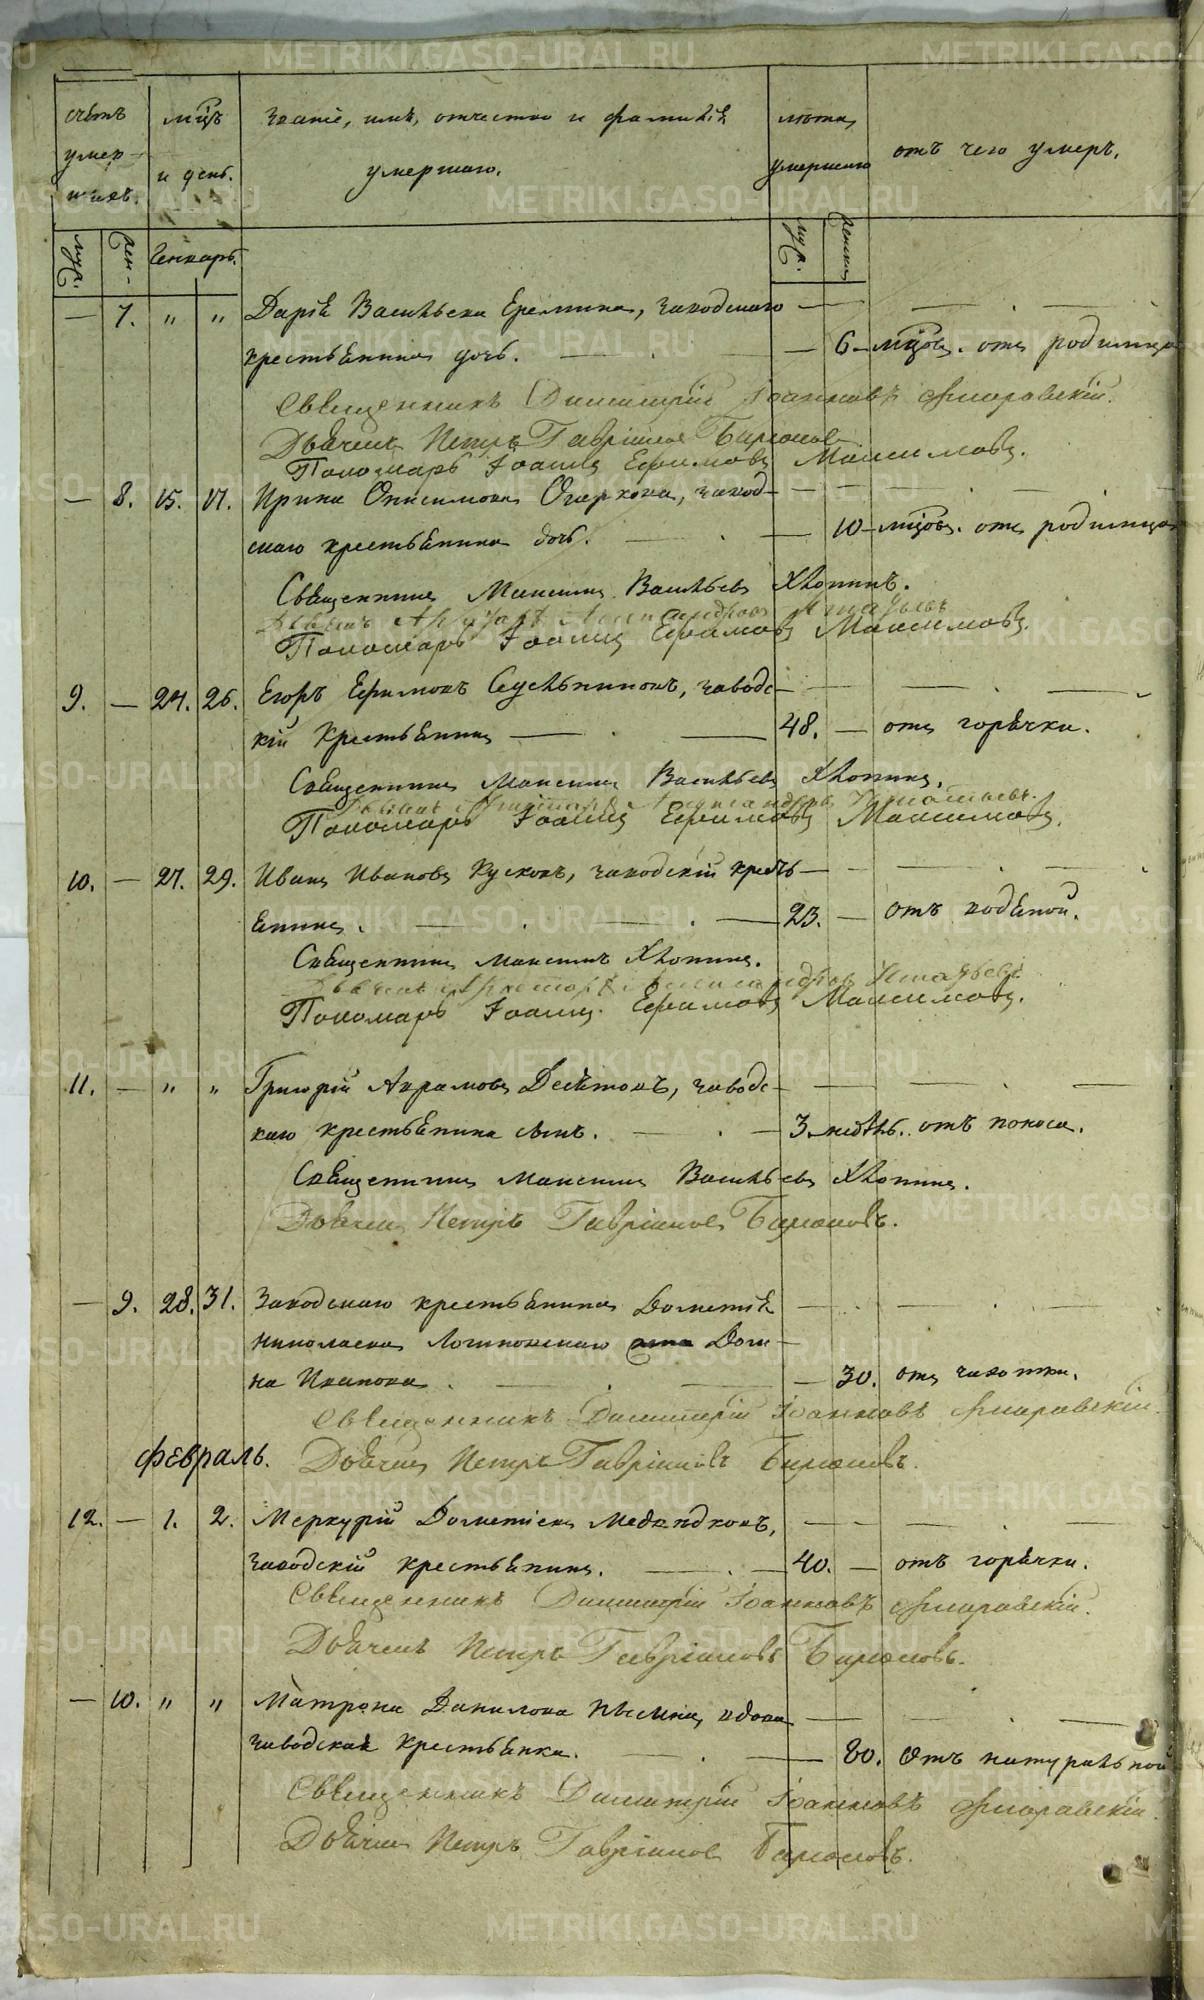 METRIKI.GASO-URAL.RU
счетъ умер-шихъ.
мцъ и день.
Званіе, имя, отчество и фамилія умершаго.
лѣта умершаго
отъ чего умеръ.
муж. жен. Генварь. муж. женск.
— 7. " " Дарія Васильева Еремина, заводскаго
крестьянина дочь. — 6 мцовъ. отъ родимца
Священникъ Димитрій Іоанновъ
Дьячекъ Петръ Гавріиловъ
Пономарь Іоаннъ Ефимовъ Максимовъ.
— 8. 15. 17. Ирина Онисимова Огаркова, завод-
скаго крестьянина дочь. — 10 мцовъ. отъ родимца
Священникъ Максимъ Васильевъ Хлопинъ.
Дьячекъ Александровъ Игнатьевъ
Пономарь Іоаннъ Ефимовъ Максимовъ.
9. — 24. 26. Егоръ Ефимовъ Сусльниковъ, заводс-
кій крестьянинъ — 48. — отъ горячки.
Священникъ Максимъ Васильевъ Хлопинъ.
Дьячекъ Александровъ Игнатьевъ.
Пономарь Іоаннъ Ефимовъ Максимовъ.
10. — 27. 29. Иванъ Ивановъ Кусковъ, заводскій кресть-
янинъ. — 23. — отъ водяной.
Священникъ Максимъ Хлопинъ.
Дьячекъ Александровъ Игнатьевъ
Пономарь Іоаннъ Ефимовъ Максимовъ.
11. — " " Григорій Аврамовъ Десятовъ, заводс-
каго крестьянина сынъ. — 3. недѣль. отъ поноса.
Священникъ Максимъ Васильевъ Хлопинъ.
Дьячекъ Петръ Гавріиловъ
— 9. 28. 31. Заводскаго крестьянина Дометія
Николаева жена Дом-
на Иванова. — 30. отъ чахотки.
Священникъ Димитрій Іоанновъ
Февраль. Дьячекъ Петръ Гавріиловъ
12. — 1. 2. Меркурій Дометіевъ Медвѣдковъ,
заводскій крестьянинъ. — 40. — отъ горячки.
Священникъ Димитрій Іоанновъ
Дьячекъ Петръ Гавріиловъ
— 10. " " Матрона Данилова вдова
заводская крестьянка. — 80. отъ натуральной
Священникъ Димитрій Іоанновъ
Дьячекъ Петръ Гавріиловъ